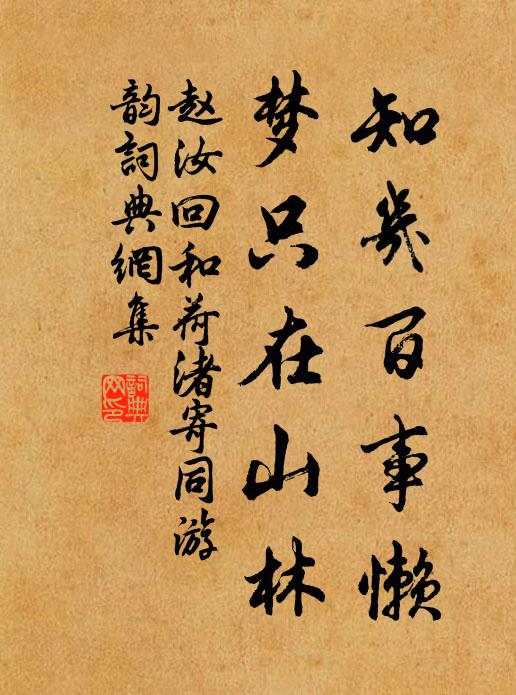 知幾百事懒
梦只在山林
赵汝回和荷渚寄同游
韵詞典網集
詞典
网印